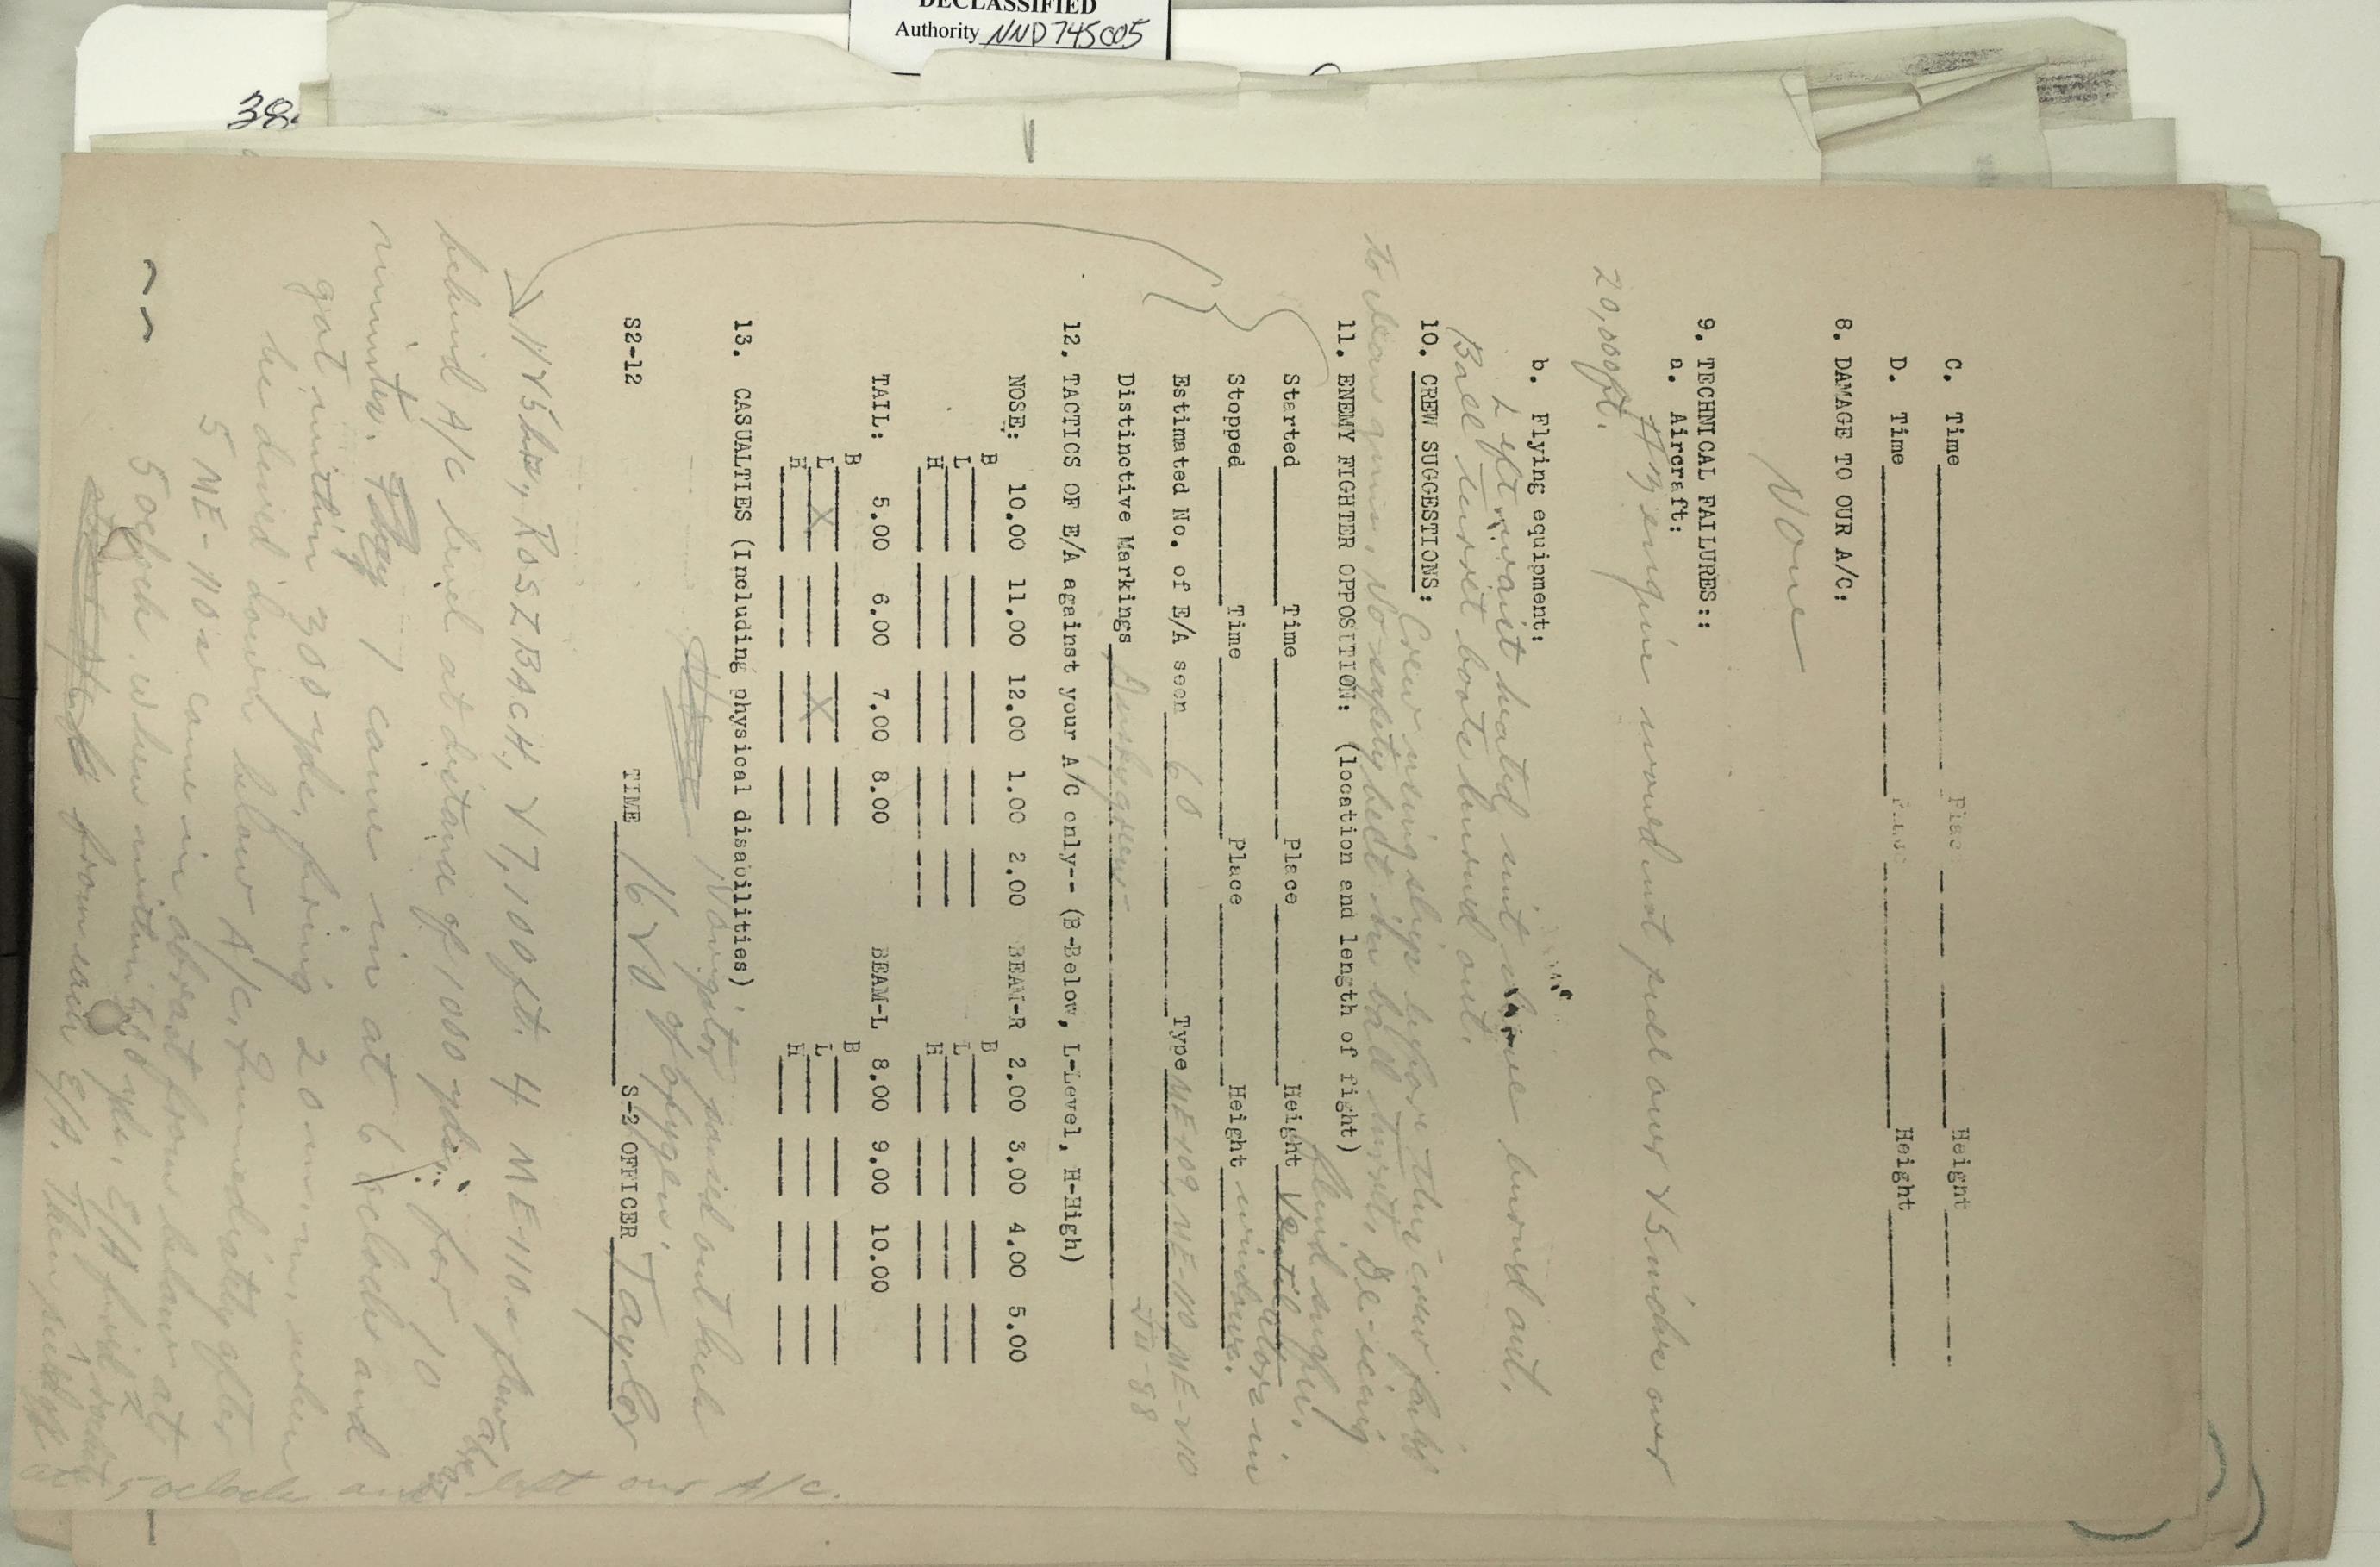 DECLASSIFIED
Authority NND745005
38
C. Time Place Height
D. Time Place Height
8. DAMAGE TO OUR A/C:
None
9. TECHNICAL FAILURES::
a. Aircraft:
#3 engine would not pull over 25 inches over
20,000 ft.
b. Flying equipment:
Left waist heated suit burned out.
Ball turret boots burned out.
10. CREW SUGGESTIONS:
Crew using ship before this crew
to clean guns. No safety belt in ball turret. De-icing
fluid
11. ENEMY FIGHTER OPPOSITION: (location and length of fight)
Started Time Place Height Ventilators in
Stopped Time Place Height windows.
Estimated No. of E/A seen 60 Type ME-109, ME-110 ME-210
JU-88
Distinctive Markings
12. TACTICS OF E/A against your A/C only-- (B-Below, L-Level, H-High)
NOSE: 10.00 11.00 12.00 1.00 2.00 BEAM-R 2.00 3.00 4.00 5.00
B B
L L
H H
TAIL: 5.00 6.00 7.00 8.00 BEAM-L 8.00 9.00 10.00
B B
L X X L
H H
13. CASUALTIES (Including physical disabilities)
Navigator passed out lack
of oxygen.
S2-12 TIME 1620 S-2 OFFICER Taylor
ROSZBACH, 27,100 ft. 4 ME-110s flew
behind A/C level at distance of 1000 yds. for 10
minutes. 1 came in at 6 oclock and
got within 300 yds. firing 20 m.m. when
he dived down below A/C. Immediately after
5 ME-110s came in abreast from below at
5 oclock when within yds. E/A fired 2
from each E/A. Then
at 5 oclock and left our A/C.